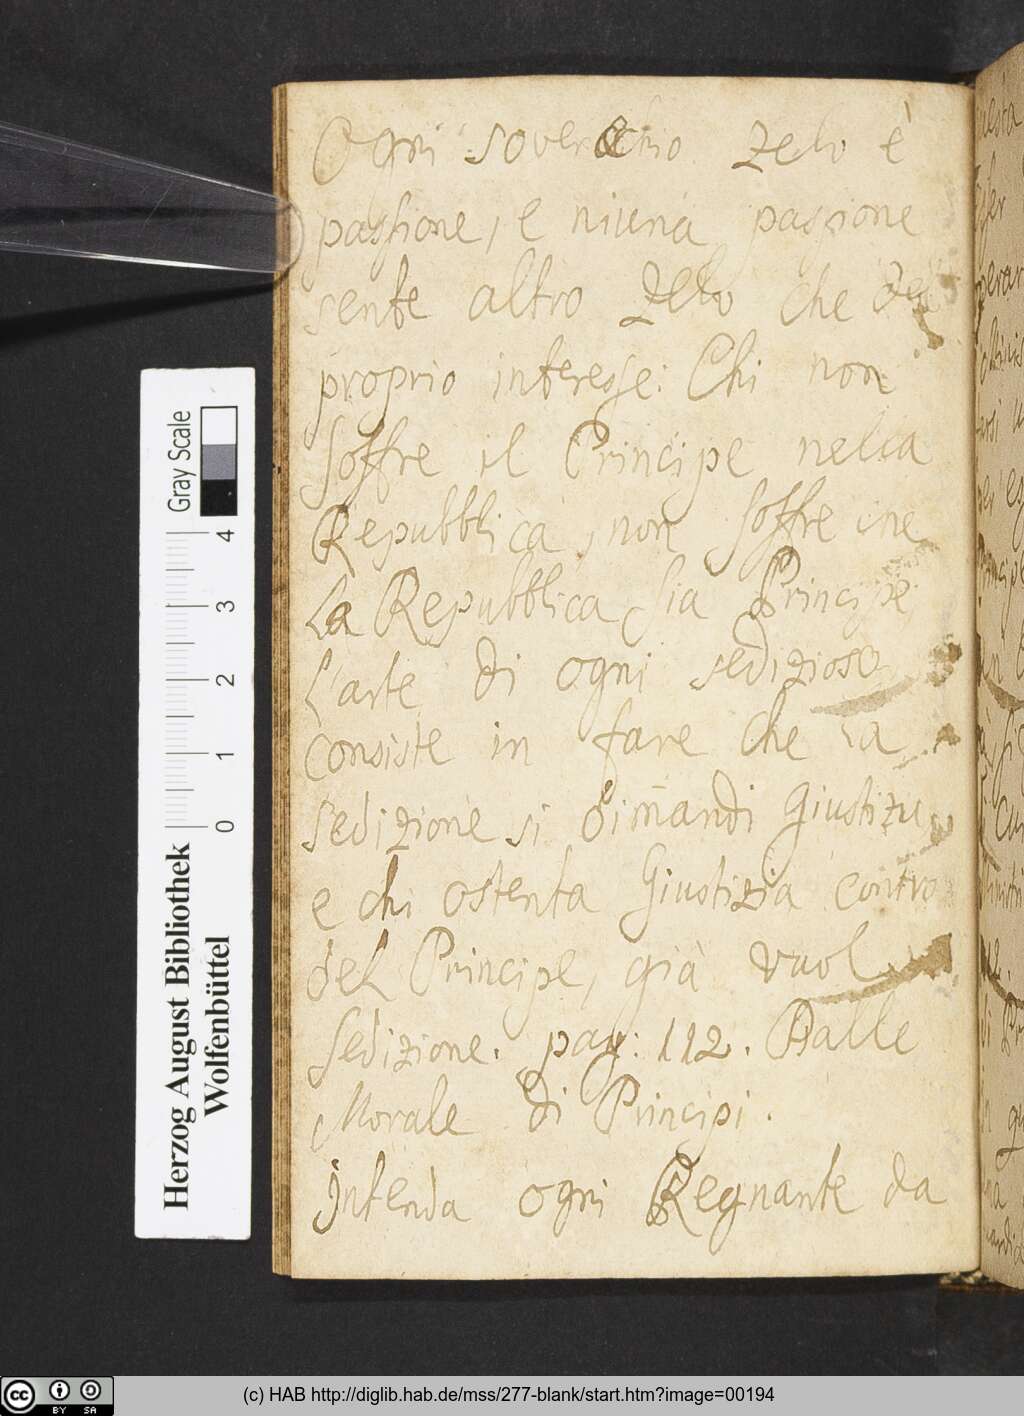 Ogni soverchio zelo è
passione, e niuna passione
sente altro zelo che del
proprio interesse: Chi non
soffre il Principe nella
Repubblica, non soffre che
la Repubblica sia Principe
L'arte di ogni sedizioso
consiste in fare che la
sedizione si dimandi giustizia,
e chi ostenta Giustizia contro
del Principe, già vuol
sedizione. pag: 112. Dalle
Morale di Principi.
Intenda ogni Regnante da
Gray Scale
0 1 2 3 4
Herzog August Bibliothek
Wolfenbüttel
cc BY SA
(c) HAB http://diglib.hab.de/mss/277-blank/start.htm?image=00194